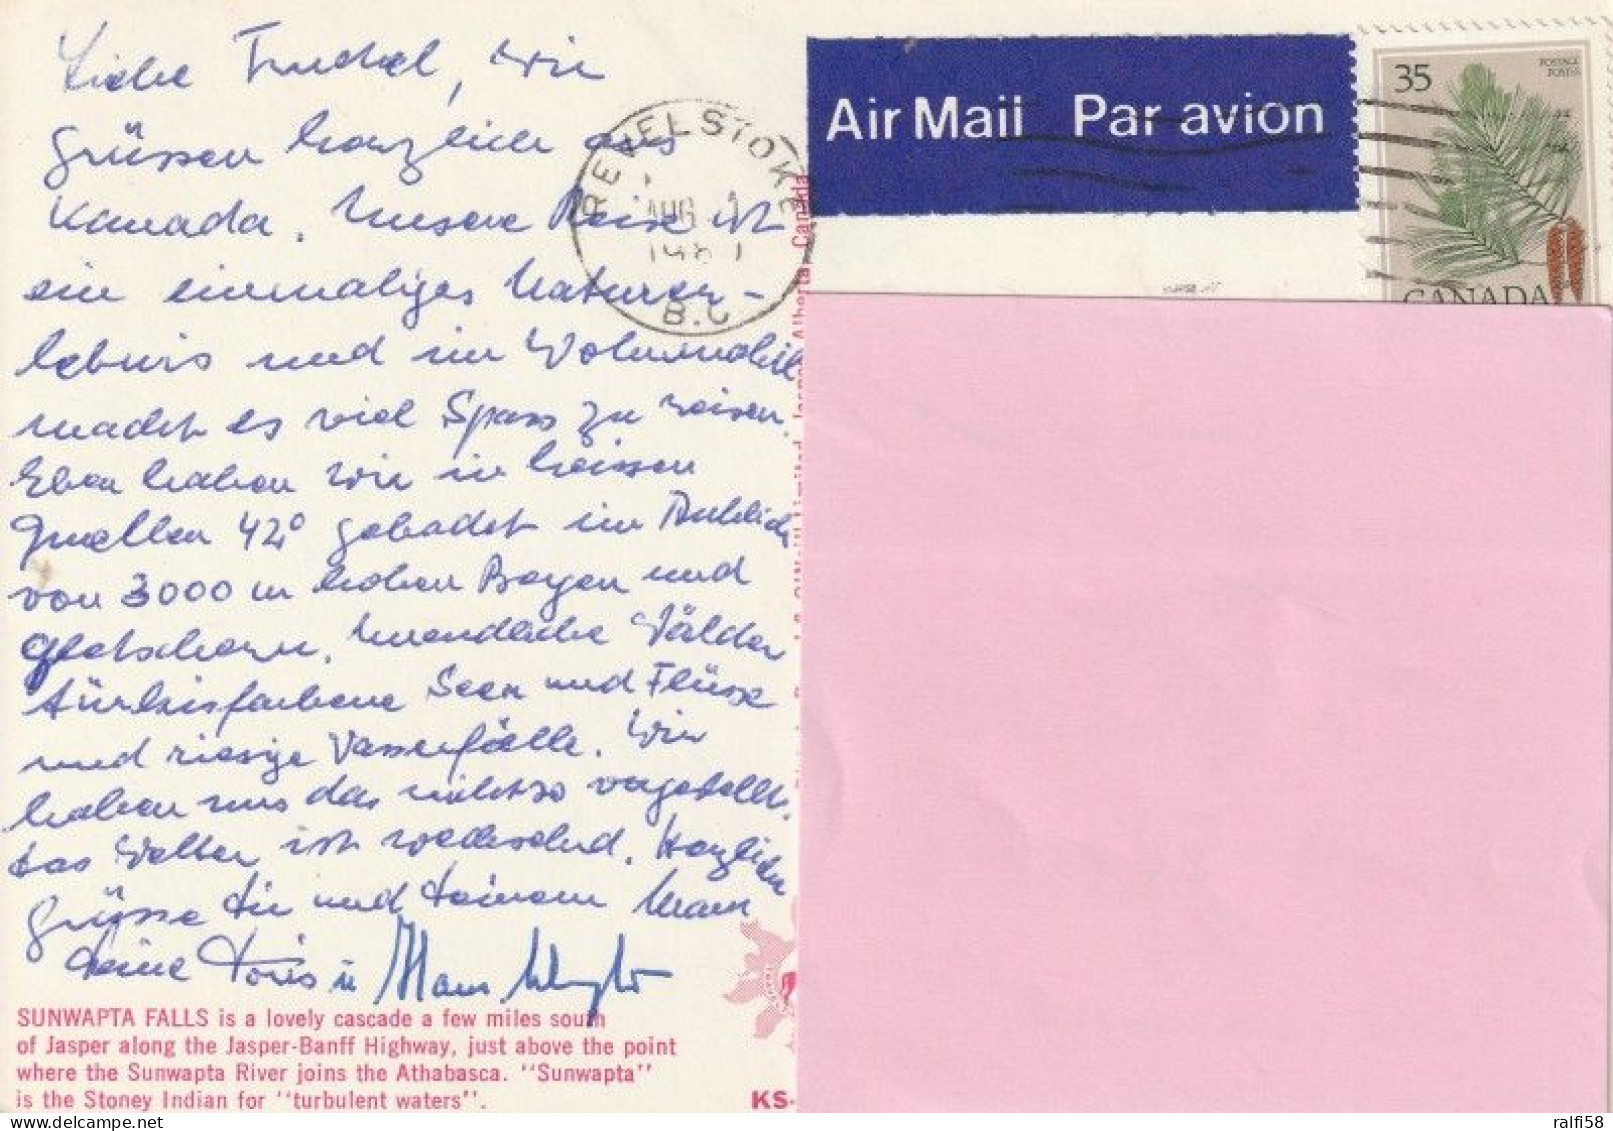 Liebe Trudel, wir
grüssen herzlich aus
Kanada. Unsere Reise ist
ein einmaliges Naturer-
lebnis und im Wohnmobil
macht es viel Spass zu reisen.
Eben haben wir in heissen
Quellen 42° gebadet im Anblick
von 3000 m hohen Bergen und
Gletschern. Unendliche Wälder
türkisfarbene Seen und Flüsse
und riesige Wasserfälle. Wir
haben uns das nicht so vorgestellt.
Das Wetter ist wechselnd. Herzliche
Grüsse Dir und Deinem Mann
Deine Doris u Hans
SUNWAPTA FALLS is a lovely cascade a few miles south
of Jasper along the Jasper-Banff Highway, just above the point
where the Sunwapta River joins the Athabasca. "Sunwapta"
is the Stoney Indian for "turbulent waters".
KS-
REVELSTOKE
AUG
B.C
Alberta, Canada
Air Mail Par avion
35
POSTAGE
POSTES
CANADA
delcampe.net
ralfi58